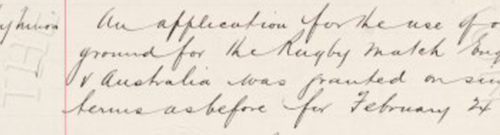 An application for the use of o
ground for the Rugby match Eng
& Australia was granted on sim
terms as before for February 24